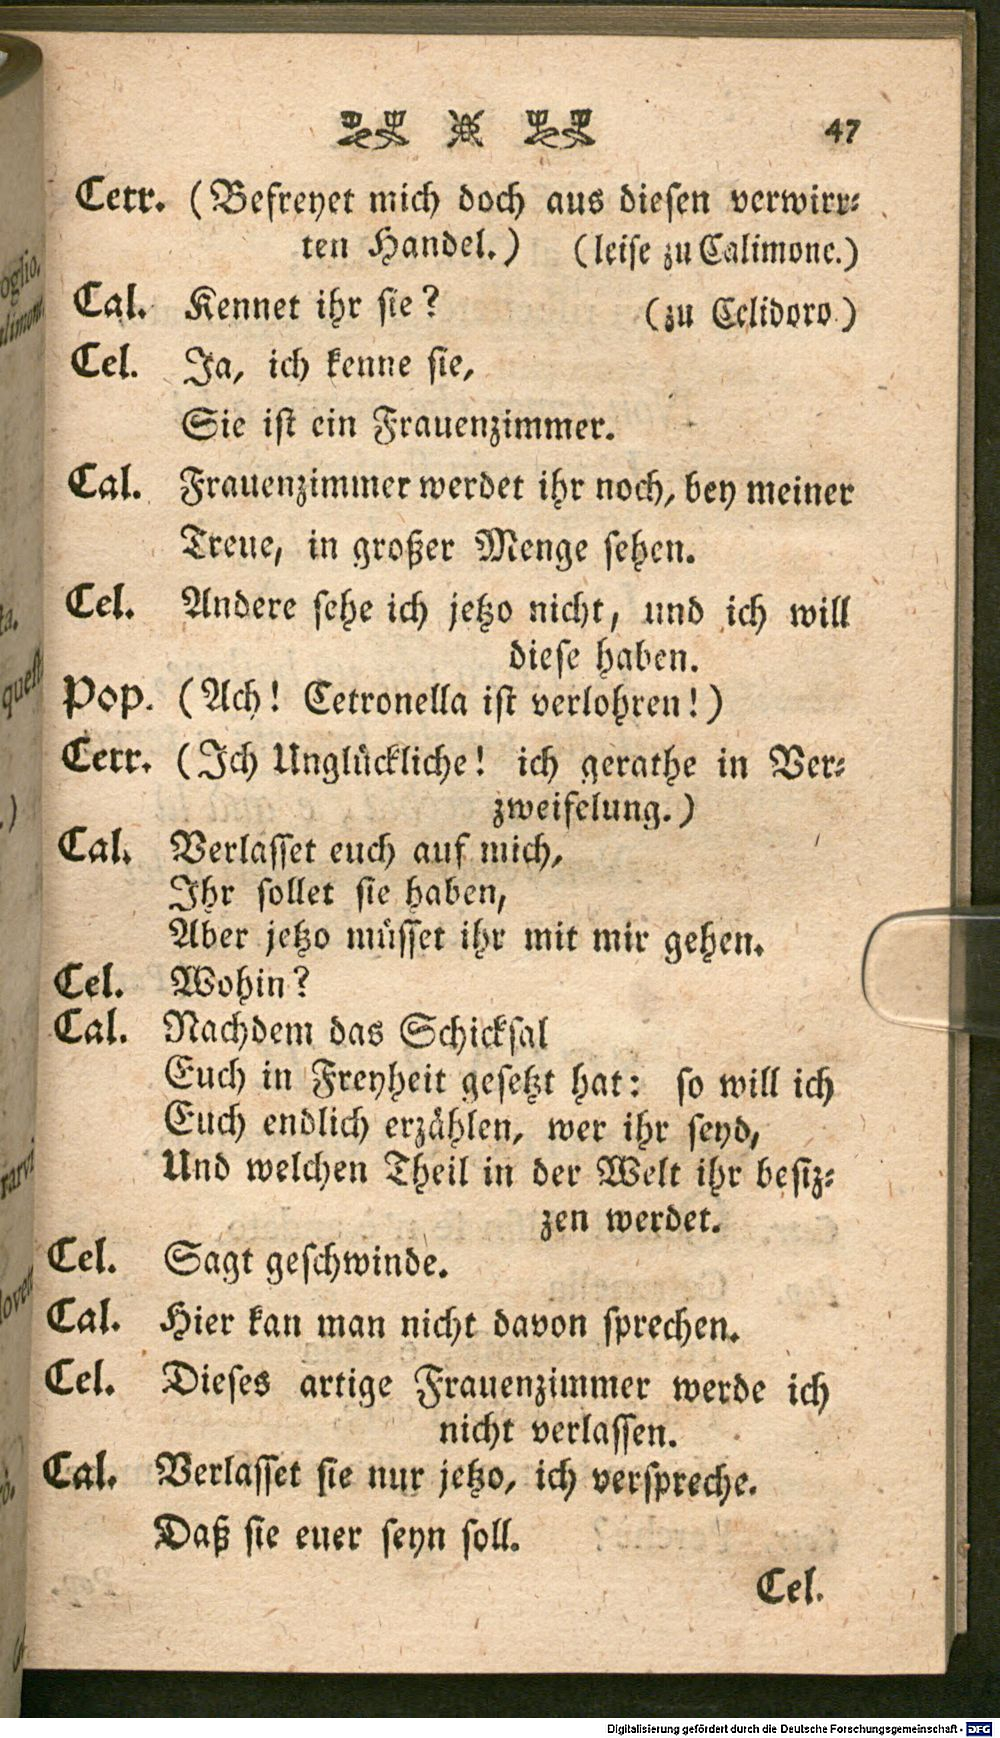 47
Cetr. (Befreyet mich doch aus diesen verwirr-
ten Handel.) (leise zu Calimone.)
Cal. Kennet ihr sie? (zu Celidoro.)
Cel. Ja, ich kenne sie,
Sie ist ein Frauenzimmer.
Cal. Frauenzimmer werdet ihr noch, bey meiner
Treue, in großer Menge sehen.
Cel. Andere sehe ich jetzo nicht, und ich will
diese haben.
Pop. (Ach! Cetronella ist verlohren!)
Cetr. (Ich Unglückliche! ich gerathe in Ver-
zweifelung.)
Cal. Verlasset euch auf mich,
Ihr sollet sie haben,
Aber jetzo müsset ihr mit mir gehen.
Cel. Wohin?
Cal. Nachdem das Schicksal
Euch in Freyheit gesetzt hat: so will ich
Euch endlich erzählen, wer ihr seyd,
Und welchen Theil in der Welt ihr besiz-
zen werdet.
Cel. Sagt geschwinde.
Cal. Hier kan man nicht davon sprechen.
Cel. Dieses artige Frauenzimmer werde ich
nicht verlassen.
Cal. Verlasset sie nur jetzo, ich verspreche.
Daß sie euer seyn soll.
Cel.
Digitalisierung gefördert durch die Deutsche Forschungsgemeinschaft - DFG